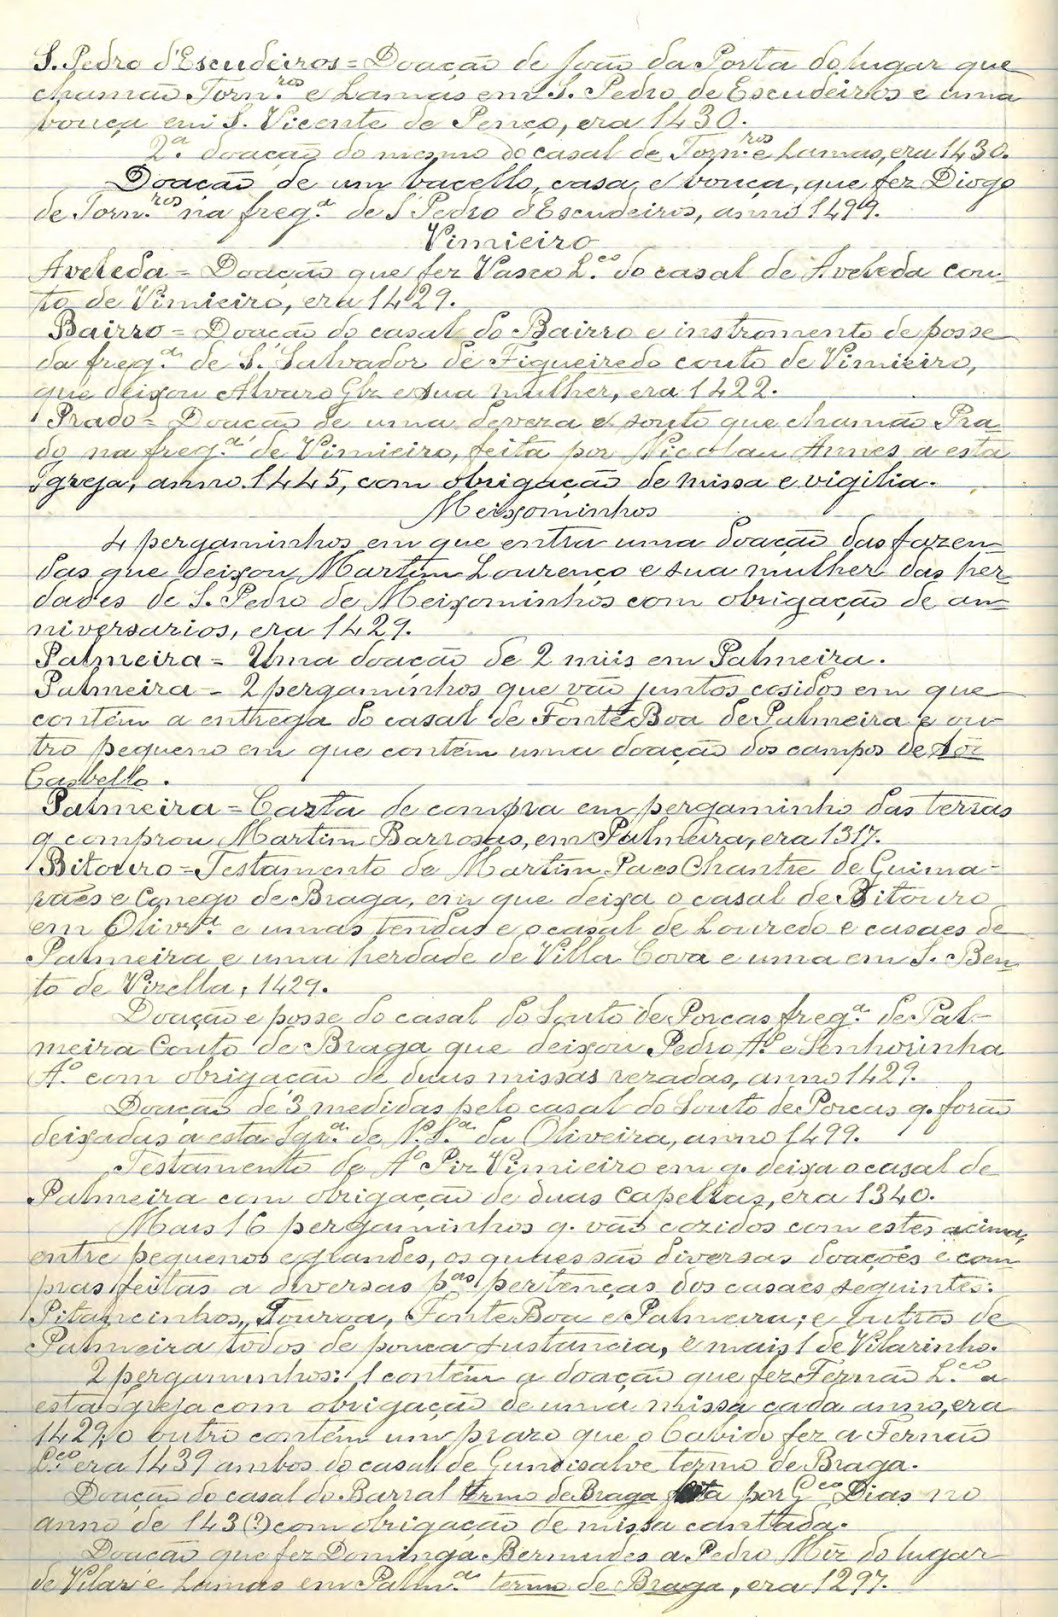 S. Pedro d'Escudeiros = Doação de João da Porta do lugar que
chamão Torn.ros e Lamas em S. Pedro de Escudeiros e uma
bouça em S. Vicente de Penço, era 1430.
2.ª doação do mesmo do casal de Torn.ros e Lamas, era 1430.
Doação de um bacello, casa, e bouça, que fez Diogo
de Torn.ros na freg.ª de S Pedro d'Escudeiros, anno 1499.
Vimieiro
Aveleda = Doação que fez Vasco L.ço do casal de Aveleda cou-
to de Vimieiro, era 1429.
Bairro = Doação do casal do Bairro e instromento de posse
da freg.ª de S. Salvador de Figueiredo couto de Vimieiro,
que deixou Alvaro Glz e sua mulher, era 1422.
Prado = Doação de uma deveza e souto que chamão Pra-
do na freg.ª de Vimieiro, feita por Nicolau Annes a esta
Igreja, anno 1445, com obrigação de missa e vigilia.
Meixominhos
4 pergaminhos em que entra uma doação das fazen-
das que deixou Martim Lourenço e sua mulher das her-
dades de S. Pedro de Meixominhos com obrigação de an-
niversarios, era 1429.
Palmeira = Uma doação de 2 miis em Palmeira.
Palmeira - 2 pergaminhos que vão juntos cosidos em que
contém a entrega do casal de Fonte Boa de Palmeira e ou-
tro pequeno em que contém uma doação dos campos de
Castello.
Palmeira = Carta de compra em pergaminho das terras
q comprou Martim Barrosas, em Palmeira, era 1317.
Bitouro = Testamento de Martim Paes Chantre de Guima-
rães e Conego de Braga, em que deixa o casal de Bitouro
em Olivr.ª e umas tendas e o casal de Louredo e casaes de
Palmeira e uma herdade de Villa Cova e uma em S. Ben-
to de Vizella, 1429.
Doação e posse do casal do Souto de Porcas freg.ª de Pal-
meira Couto de Braga que deixou Pedro A.º e Senhorinha
A.º com obrigação de duas missas rezadas, anno 1429.
Doação de 3 medidas pelo casal do Souto de Porcas q. forão
deixadas a esta Igr.ª de N. S.ª da Oliveira, anno 1499.
Testamento de A.º Piz Vimieiro em q. deixa o casal de
Palmeira com obrigação de duas capellas, era 1340.
Mais 16 pergaminhos q. vão cozidos com estes acima,
entre pequenos e grandes, os quaes são diversas doações e com-
pras feitas a diversas p.as pertenças dos casaes seguintes:
Pitancinhos, Touroa, Fonte Boa e Palmeira; e outros de
Palmeira todos de pouca sustancia, e mais 1 de Vilarinho.
2 pergaminhos: 1 contém a doação que fez Fernão L.ço a
esta Igreja com obrigação de uma missa cada anno, era
1429, o outro contém um prazo que o Cabido fez a Fernão
L.ço era 1439 ambos do casal de Gundisalve termo de Braga.
Doação do casal do Barral termo de Braga por G.ço Dias no
anno de 143(?) com obrigação de missa cantada.
Doação que fez Dominga Bermudes a Pedro Miz do lugar
de Vilar e Lamas em Palm.ª termo de Braga, era 1297.